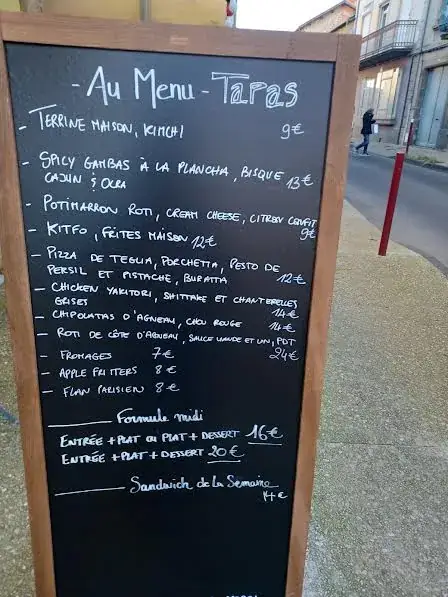 - Au Menu - Tapas
- TERRINE MAISON, KIMCHI 9€
- SPICY GAMBAS À LA PLANCHA, BISQUE
CAJUN & OKRA 13€
- POTIMARRON ROTI, CREAM CHEESE, CITRON CONFIT
9€
- KITFO, FRITES MAISON 12€
- PIZZA DE TEGLIA, PORCHETTA, PESTO DE
PERSIL ET PISTACHE, BURATTA 12€
- CHICKEN YAKITORI, SHIITAKE ET CHANTERELLES
GRISES 14€
- CHIPOLATAS D'AGNEAU, CHOU ROUGE 14€
- ROTI DE CÔTE D'AGNEAU, SAUCE VIANDE ET VIN, PDT
24€
- FROMAGES 7€
- APPLE FRITTERS 8€
- FLAN PARISIEN 8€
Formule midi
ENTRÉE + PLAT OU PLAT + DESSERT 16€
ENTRÉE + PLAT + DESSERT 20€
Sandwich de la Semaine
14€